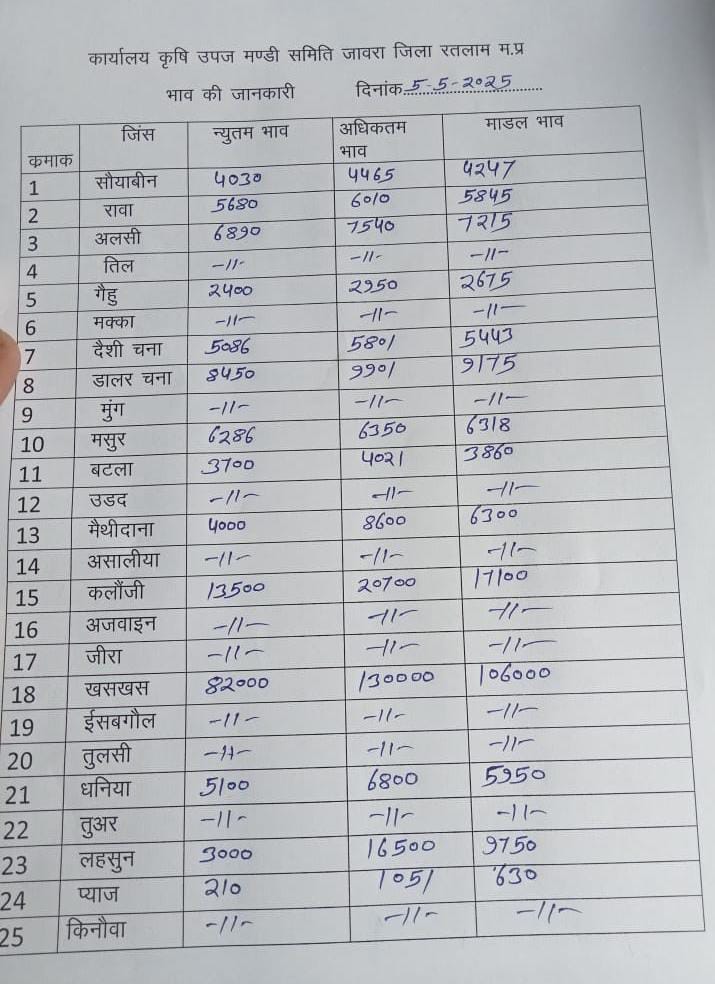 कार्यालय कृषि उपज मण्डी समिति जावरा जिला रतलाम म.प्र
भाव की जानकारी दिनांक 5-5-2025
कमाक जिंस न्युतम भाव अधिकतम भाव माडल भाव
1 सौयाबीन 4030 4465 4247
2 रावा 5680 6010 5845
3 अलसी 6890 7540 7215
4 तिल -11- -11- -11-
5 गैहु 2400 2950 2675
6 मक्का -11- -11- -11-
7 दैशी चना 5086 5801 5443
8 डालर चना 8450 9901 9175
9 मुंग -11- -11- -11-
10 मसुर 6286 6350 6318
11 बटला 3700 4021 3860
12 उडद -11- -11- -11-
13 मैथीदाना 4000 8600 6300
14 असालीया -11- -11- -11-
15 कलौंजी 13500 20700 17100
16 अजवाइन -11- -11- -11-
17 जीरा -11- -11- -11-
18 खसखस 82000 130000 106000
19 ईसबगौल -11- -11- -11-
20 तुलसी -11- -11- -11-
21 धनिया 5100 6800 5950
22 तुअर -11- -11- -11-
23 लहसुन 3000 16500 9750
24 प्याज 210 1051 630
25 किनौवा -11- -11- -11-